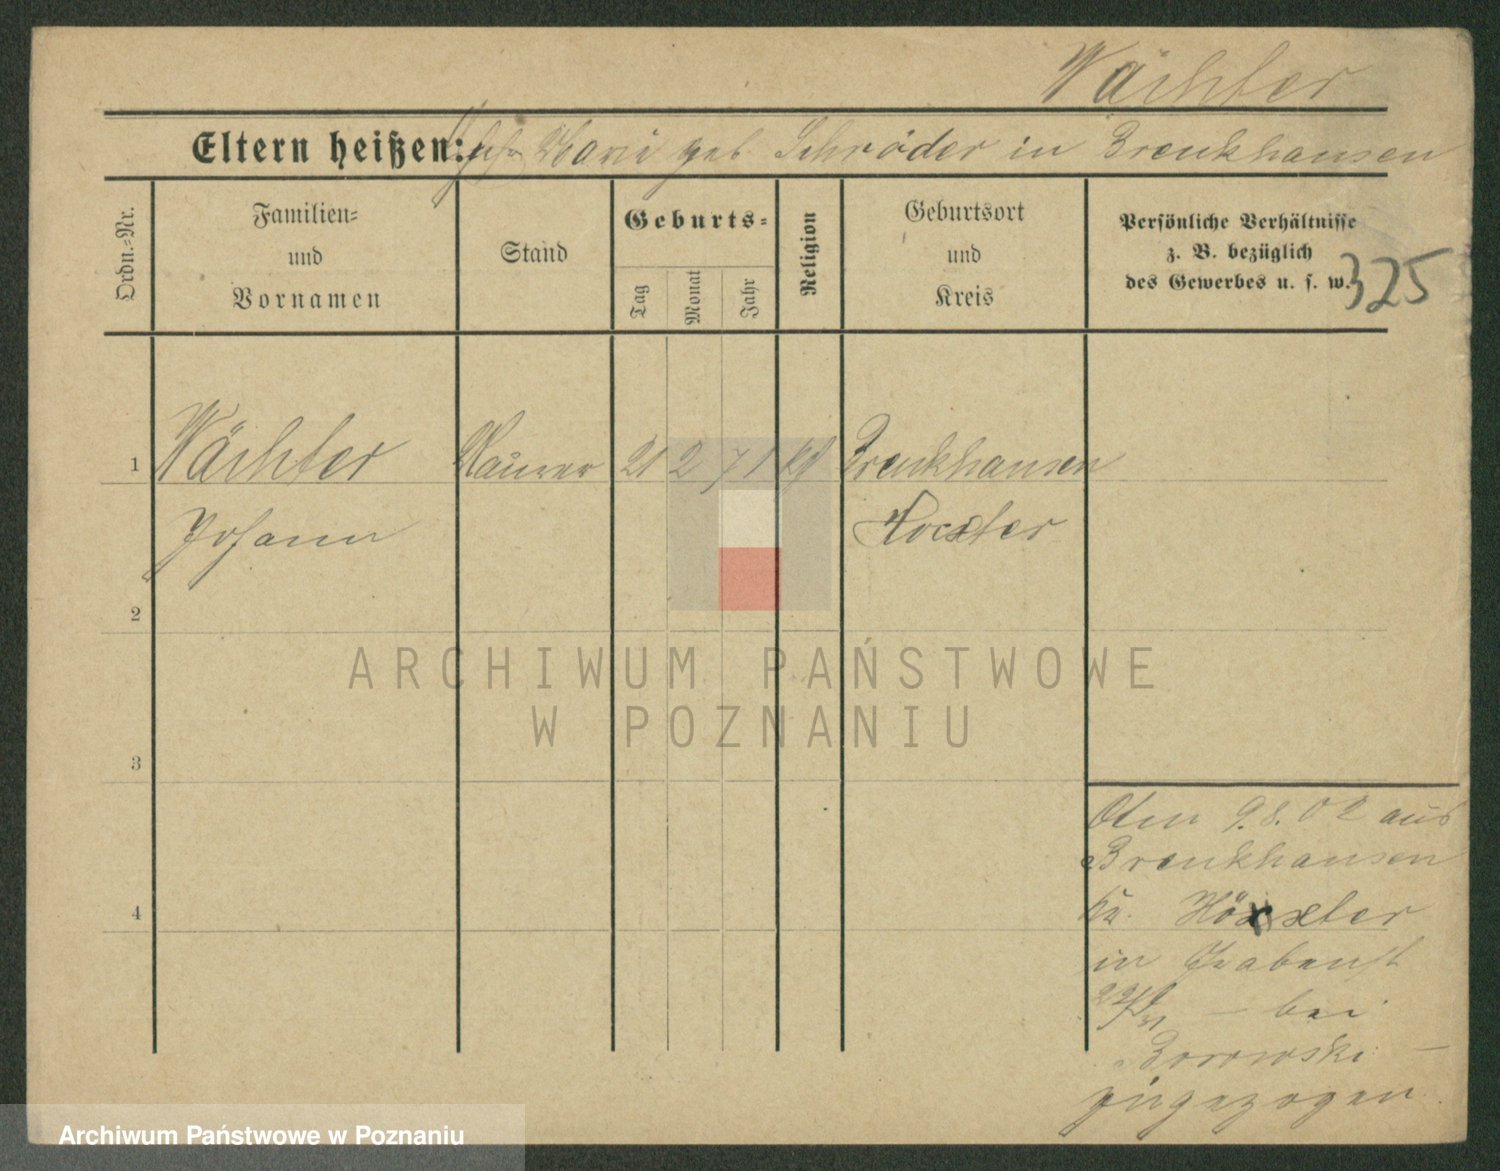 Wächter
Eltern heißen: Marie geb. Schröder in Brenkhausen
Ordn.-Nr.
Familien-
und
Vornamen
Stand
Geburts-
Tag
Monat
Jahr
Religion
Geburtsort
und
Kreis
Persönliche Verhältnisse
z. B. bezüglich
des Gewerbes u. s. w.
325
1 Wächter Maurer 21 2 71 Brenkhausen
Johann Hoexter
2
3
4
9.8.02 aus
Brenkhausen
Höxter
in Grabenst
22 — bei
Borowski —
zugezogen
ARCHIWUM PAŃSTWOWE
W POZNANIU
Archiwum Państwowe w Poznaniu